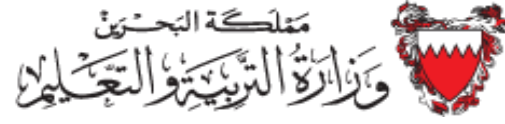 مَمْلَكَة البَحـرَيْنْ
وَزَارَةُ التَّرْبِيَةِ وَ التَّعْلِيمِ